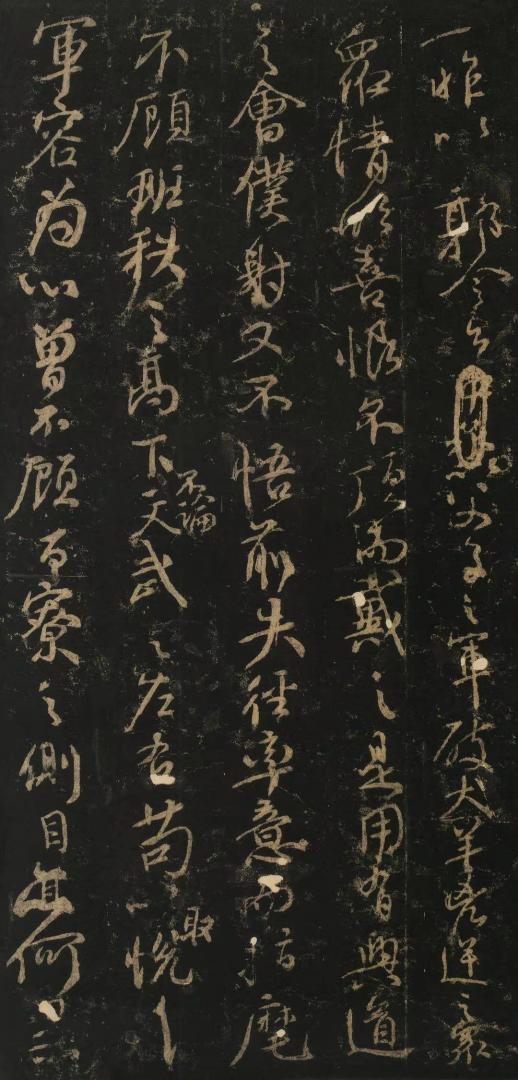 一昨以郭令公父子之軍破犬羊凶逆之衆
衆情欣喜恨不頂而戴之是用有興道
之會僕射又不悟前失徑率意而指麾
不顧班秩之高下不論文武之左右苟以取悅
軍容為心曾不顧百寮之側目亦何